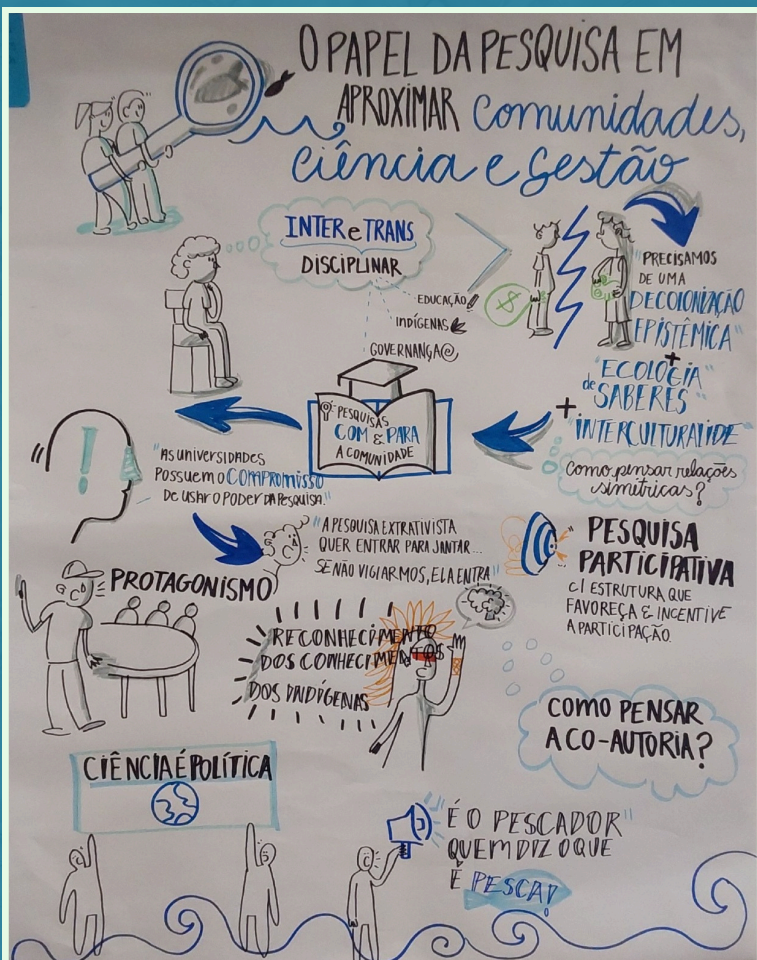 O PAPEL DA PESQUISA EM
APROXIMAR Comunidades,
Ciência e Gestão
INTER e TRANS
DISCIPLINAR
EDUCAÇÃO
INDÍGENAS
GOVERNANÇA
$
"PRECISAMOS
DE UMA
DECOLONIZAÇÃO
EPISTÊMICA"
+
"ECOLOGIA
de SABERES"
+
"INTERCULTURALIDE"
Como pensar relações
simétricas?
PESQUISAS
COM & PARA
A COMUNIDADE
"AS UNIVERSIDADES
POSSUEM O COMPROMISSO
DE USAR O PODER DA PESQUISA."
"A PESQUISA EXTRATIVISTA
QUER ENTRAR PARA JANTAR...
SE NÃO VIGIARMOS, ELA ENTRA"
PESQUISA
PARTICIPATIVA
C/ ESTRUTURA QUE
FAVOREÇA & INCENTIVE
A PARTICIPAÇÃO.
PROTAGONISMO
RECONHECIMENTO
DOS CONHECIMENTOS
DOS INDÍGENAS
COMO PENSAR
A CO-AUTORIA?
CIÊNCIA É POLÍTICA
"É O PESCADOR"
QUEM DIZ O QUE
É PESCA!